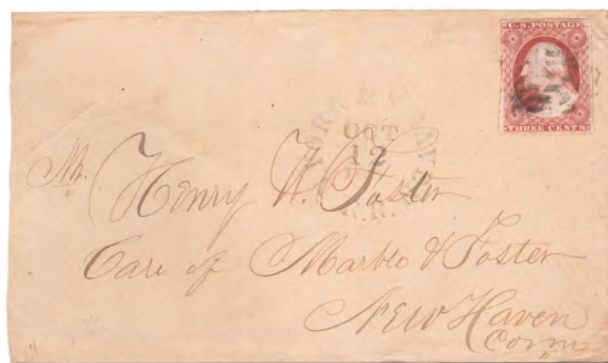 U.S. POSTAGE
THREE CENTS
OCT
12
R.R.
Mr. Henry W. Foster
Care of Marble & Foster
New Haven
Conn